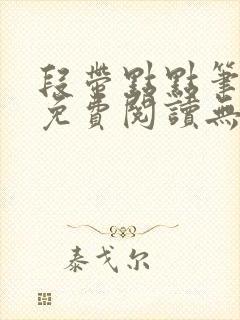 段帶點點筆
免費閱讀無
泰戈尔